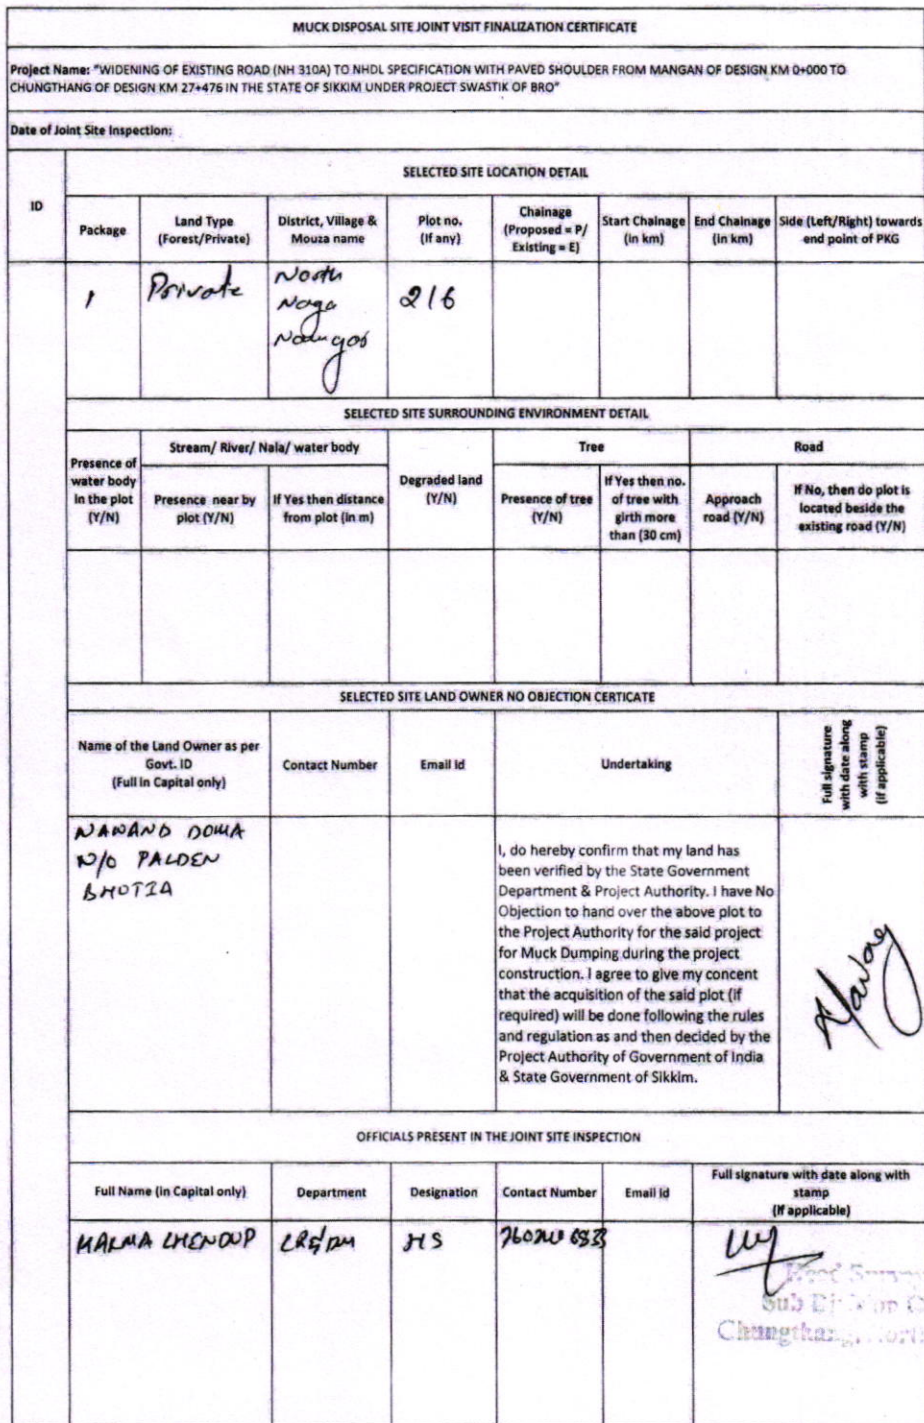 MUCK DISPOSAL SITE JOINT VISIT FINALIZATION CERTIFICATE
Project Name: "WIDENING OF EXISTING ROAD (NH 310A) TO NHDL SPECIFICATION WITH PAVED SHOULDER FROM MANGAN OF DESIGN KM 0+000 TO
CHUNGTHANG OF DESIGN KM 27+476 IN THE STATE OF SIKKIM UNDER PROJECT SWASTIK OF BRO"
Date of Joint Site Inspection:
ID
SELECTED SITE LOCATION DETAIL
Package
Land Type
(Forest/Private)
District, Village &
Mouza name
Plot no.
(If any)
Chainage
(Proposed = P/
Existing = E)
Start Chainage
(in km)
End Chainage
(in km)
Side (Left/Right) towards
end point of PKG
1
Private
North
Naga
216
SELECTED SITE SURROUNDING ENVIRONMENT DETAIL
Presence of
water body
in the plot
(Y/N)
Stream/ River/ Nala/ water body
Presence near by
plot (Y/N)
If Yes then distance
from plot (in m)
Degraded land
(Y/N)
Tree
Presence of tree
(Y/N)
If Yes then no.
of tree with
girth more
than (30 cm)
Road
Approach
road (Y/N)
If No, then do plot is
located beside the
existing road (Y/N)
SELECTED SITE LAND OWNER NO OBJECTION CERTICATE
Name of the Land Owner as per
Govt. ID
(Full in Capital only)
Contact Number
Email Id
Undertaking
Full signature
with date along
with stamp
(if applicable)
DOMA
PALDEN
BHOTIA
I, do hereby confirm that my land has
been verified by the State Government
Department & Project Authority. I have No
Objection to hand over the above plot to
the Project Authority for the said project
for Muck Dumping during the project
construction. I agree to give my concent
that the acquisition of the said plot (if
required) will be done following the rules
and regulation as and then decided by the
Project Authority of Government of India
& State Government of Sikkim.
OFFICIALS PRESENT IN THE JOINT SITE INSPECTION
Full Name (in Capital only)
Department
Designation
Contact Number
Email Id
Full signature with date along with
stamp
(if applicable)
HS
Sub
Chungthang,